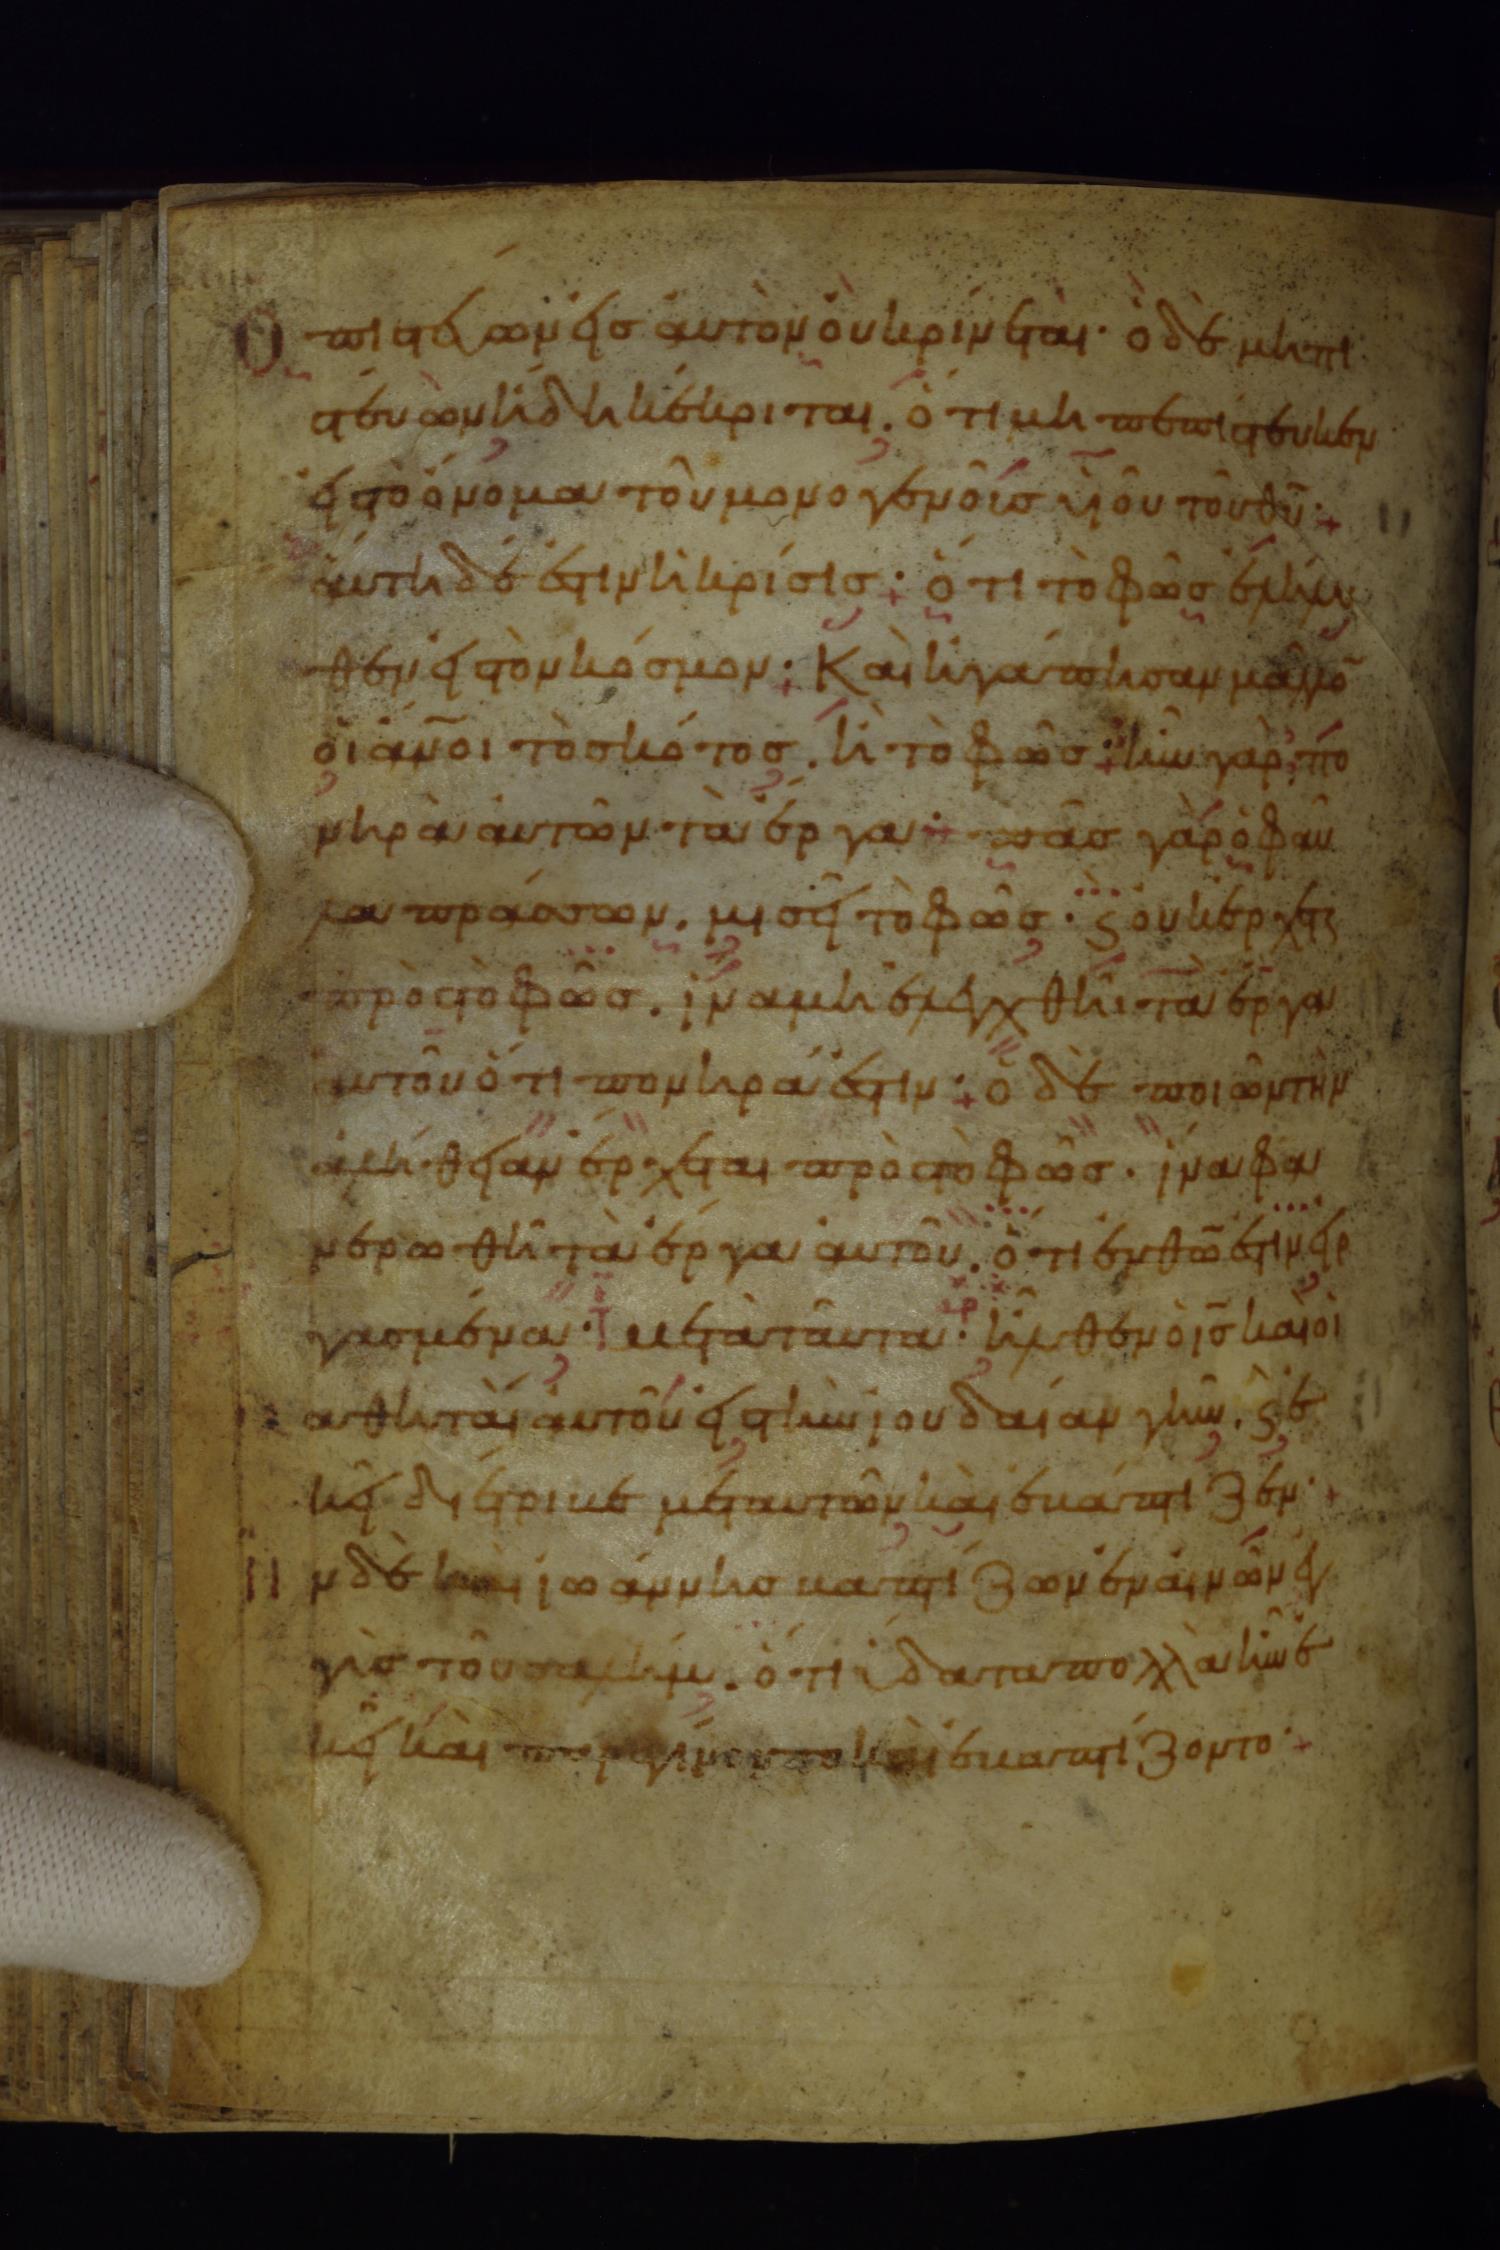 Ὁ πιστεύων εἰς αὐτὸν οὐ κρίνεται· ὁ δὲ μὴ πι
στεύων ἤδη κέκριται. ὅτι μὴ πεπίστευκεν
εἰς τὸ ὄνομα τοῦ μονογενοῖς ὑιοῦ τοῦ θῦ·
ἁύτη δέ ἐστιν ἡ κρίσις· ὅτι τὸ φῶς ἐλήλυ
θεν εἰς τὸν κόσμον· Καὶ ἠγάπησαν μᾶλλο
ὁι ἄνοι τὸ σκότος. ἢ τὸ φῶς· ἦν γὰρ πο
νηρὰ ἀυτῶν τὰ ἔργα· πᾶς γὰρ ὁ φαῦ
λα πράσσων. μισεῖ τὸ φῶς· ϛ οὐκ ἔρχεται
πρὸς τὸ φῶς. ἵνα μὴ ἐλεγχθῆ τὰ ἔργα
ἀυτοῦ ὅτι πονηρά ἐστιν· ὁ δὲ ποιῶν τὴν
ἀλήθειαν ἔρχεται πρὸς τὸ φῶς. ἵνα φα
νερωθῆ τὰ ἔργα ἀυτοῦ. ὅτι ἐν θῶ ἐστιν ἐιρ
γασμένα· μετὰ ταῦτα· ἦλθεν ὁ ις καὶ ὁι
μαθηταὶ ἀυτοῦ εἰς τὴν ἰουδαίαν γῆν. ϛ ἐ
κεῖ διέτριβε μετ αυτῶν καὶ ἐβάπτιζεν·
Ην δὲ καὶ ἰωάννης βαπτίζων ἐν αἰνὼν ἐγ
γὺς τοῦ σαλήμ. ὅτι ὕδατα πολλὰ ἦν ἐ
κεῖ καὶ παρεγίνοντο καὶ ἐβαπτίζοντο·